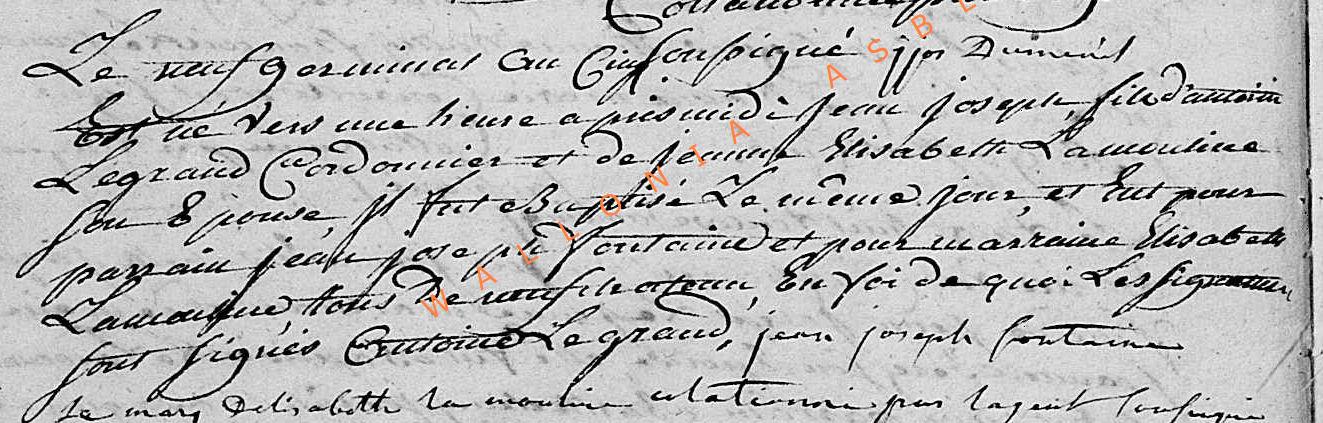 Collationné par
Le neuf germinal an cinq soussigné jjos Dumenil
Est né vers une heure apris midi jean joseph, fils d'antoin
Legrand Cordonnier et de jeanne Elisabeth Lamouline
son Epouse, jl fut Baptisé Le même jour, et Eut pour
parrain jean joseph fontaine et pour marraine Elisabeth
Lamouline, tous de neufchateau, En foi de quoi Les
sont signés Antoine Legrand, jean joseph fontaine
le marq delisabeth la mouline colationné par lagent soussigné
WALLONIA ASBL